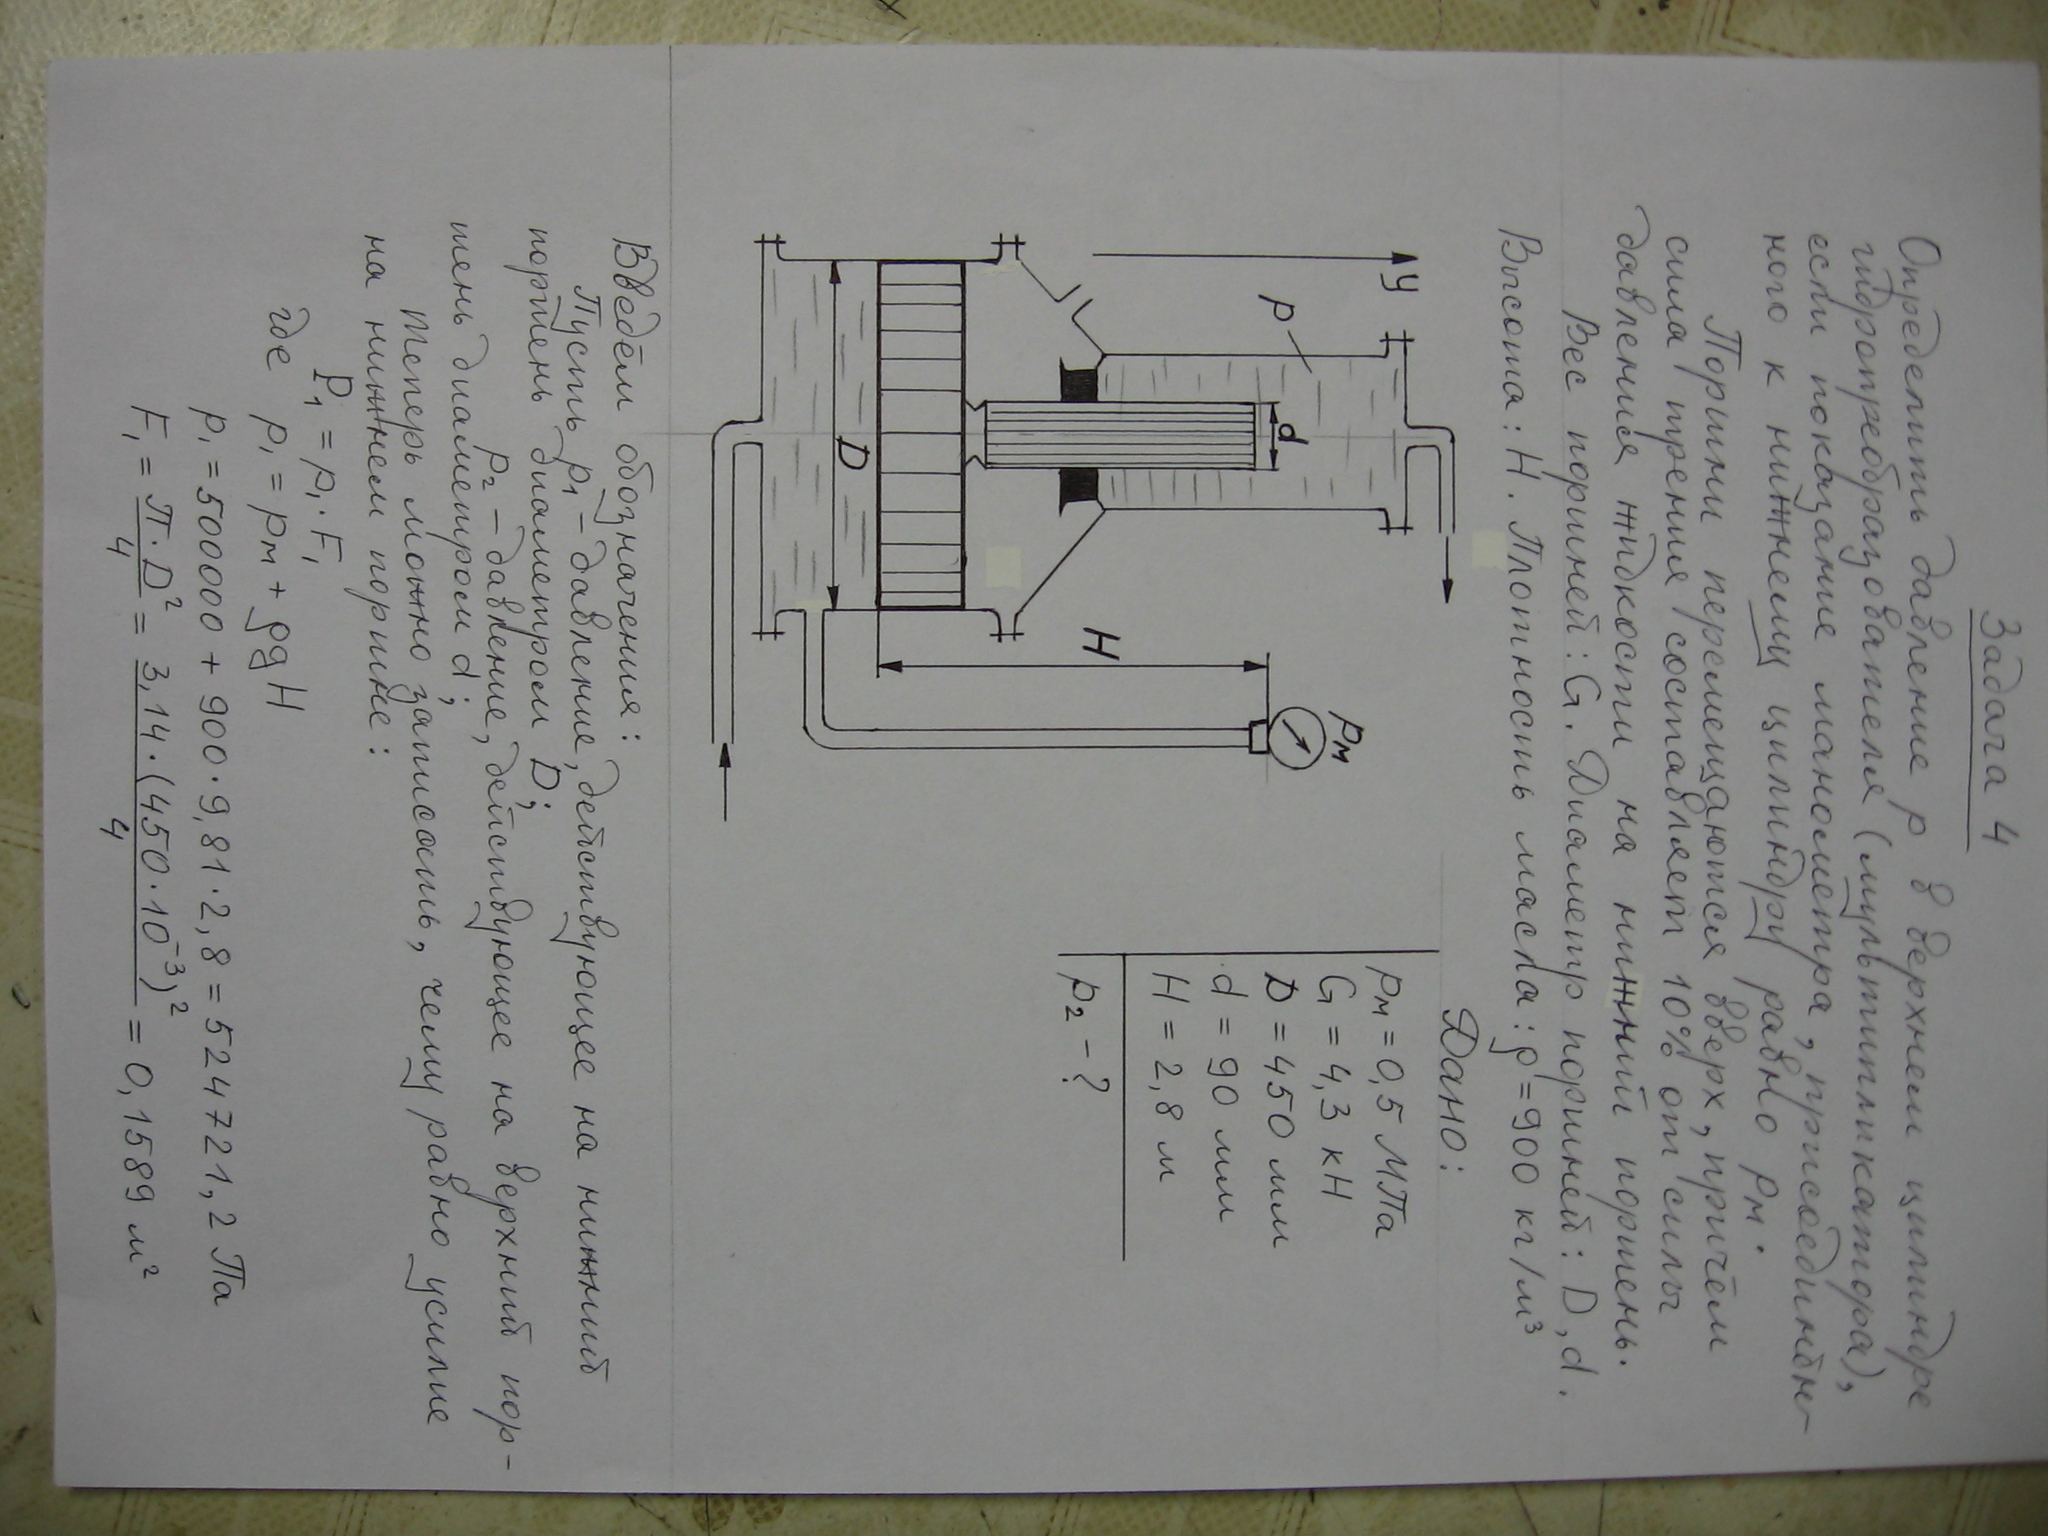 Задача 4
Определить давление p в верхнем цилиндре
гидропреобразователя (мультипликатора),
если показание манометра, присоединён-
ного к нижнему цилиндру равно pм.
Поршни перемещаются вверх, причём
сила трения составляет 10% от силы
давления жидкости на нижний поршень.
Вес поршней: G. Диаметр поршней: D, d.
Высота: H. Плотность масла: ρ = 900 кг/м³
y
p
d
D
H
pм
Дано:
pм = 0,5 МПа
G = 4,3 кН
D = 450 мм
d = 90 мм
H = 2,8 м
p₂ – ?
Введём обозначения:
Пусть p₁ – давление, действующее на нижний
поршень диаметром D;
p₂ – давление, действующее на верхний пор-
шень диаметром d;
Теперь можно записать, чему равно усилие
на нижнем поршне:
P₁ = p₁ · F₁
где p₁ = pм + ρgH
p₁ = 500000 + 900 · 9,81 · 2,8 = 524721,2 Па
F₁ = П · D² / 4 = 3,14 · (450 · 10⁻³)² / 4 = 0,1589 м²